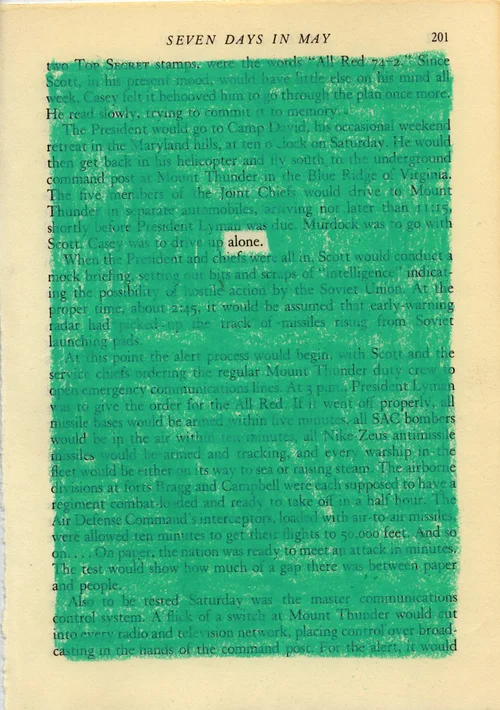 SEVEN DAYS IN MAY 201
two TOP SECRET stamps, were the words "All Red 74-2." Since
Scott, in his present mood, would have little else on his mind all
week, Casey felt it behooved him to go through the plan once more.
He read slowly, trying to commit it to memory.
The President would go to Camp David, his occasional weekend
retreat in the Maryland hills, at ten o'clock on Saturday. He would
then get back in his helicopter and fly south to the underground
command post at Mount Thunder in the Blue Ridge of Virginia.
The five members of the Joint Chiefs would drive to Mount
Thunder in separate automobiles, arriving not later than 11:15,
shortly before President Lyman was due. Murdock was to go with
Scott. Casey was to drive up alone.
When the President and chiefs were all in, Scott would conduct a
mock briefing, setting out bits and scraps of "intelligence" indicat-
ing the possibility of hostile action by the Soviet Union. At the
proper time, about 2:45, it would be assumed that early-warning
radar had picked up the track of missiles rising from Soviet
launching pads.
At this point the alert process would begin, with Scott and the
service chiefs ordering the regular Mount Thunder duty crew to
open emergency communications lines. At 3 p.m., President Lyman
was to give the order for the All Red. If it went off properly, all
missile bases would be armed within five minutes, all SAC bombers
would be in the air within ten minutes, all Nike-Zeus antimissile
missiles would be armed and tracking, and every warship in the
fleet would be either on its way to sea or raising steam. The airborne
divisions at forts Bragg and Campbell were each supposed to have a
regiment combat-loaded and ready to take off in a half hour. The
Air Defense Command's interceptors, loaded with air-to-air missiles,
were allowed ten minutes to get their flights to 50,000 feet. And so
on. . . . On paper, the nation was ready to meet an attack in minutes.
The test would show how much of a gap there was between paper
and people.
Also to be tested Saturday was the master communications
control system. A flick of a switch at Mount Thunder would cut
into every radio and television network, placing control over broad-
casting in the hands of the command post. For the alert, it would